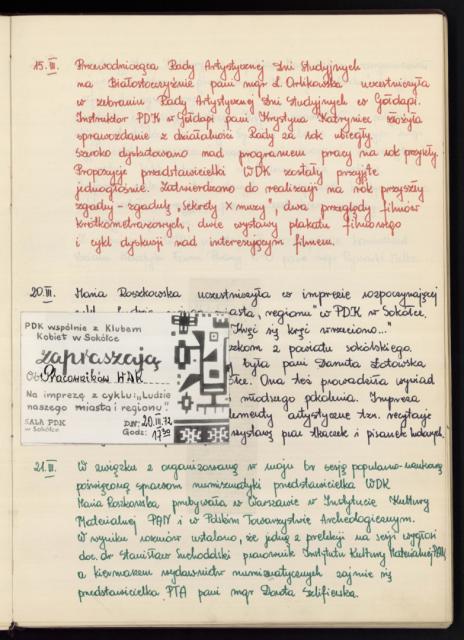 15.III. Przewodnicząca Rady Artystycznej Dni Studyjnych
na Białostocczyźnie pani mgr L. Orlikowska uczestniczyła
w zebraniu Rady Artystycznej Dni Studyjnych w Gołdapi.
Instruktor PDK w Gołdapi pani Krystyna Katryniec złożyła
sprawozdanie z działalności Rady za rok ubiegły.
Szeroko dyskutowano nad programem pracy na rok przyszły.
Propozycje przedstawicielki WDK zostały przyjęte
jednogłośnie. Zatwierdzono do realizacji na rok przyszły
zgaduj-zgadulę "sekrety X muzy", dwa przeglądy filmów
krótkometrażowych, dwie wystawy plakatu filmowego
i cykl dyskusji nad interesującym filmem.
20.III. Maria Roszkowska uczestniczyła w imprezie rozpoczynającej
miasta, regionu" w PDK w Sokółce.
"Kręć się kręć wrzeciono..."
z powiatu sokólskiego.
była pani Danuta Łotowska
Ona też prowadziła wywiad
młodszego pokolenia. Impreza
elementy artystyczne tzn. recytacje
wystawą prac tkaczek i pisanek ludowych.
PDK wspólnie z Klubem
Kobiet w Sokółce
zapraszają
Ob. Pracowników WDK
Na imprezę z cyklu: "Ludzie
naszego miasta i regionu"
SALA PDK
w Sokółce
DN: 20.III.72
Godz: 17.30
21.III. W związku z organizowaną w maju br sesją popularno-naukową
poświęconą sprawom numizmatyki przedstawicielka WDK
Maria Roszkowska, przebywała w Warszawie w Instytucie Kultury
Materialnej PAN i w Polskim Towarzystwie Archeologicznym.
W wyniku rozmów ustalono, że jedną z prelekcji na sesji wygłosi
doc. dr Stanisław Suchodolski pracownik Instytutu Kultury Materialnej PAN,
a kiermaszem wydawnictw numizmatycznych zajmie się
przedstawicielka PTA pani mgr Dorota Szlifierska.